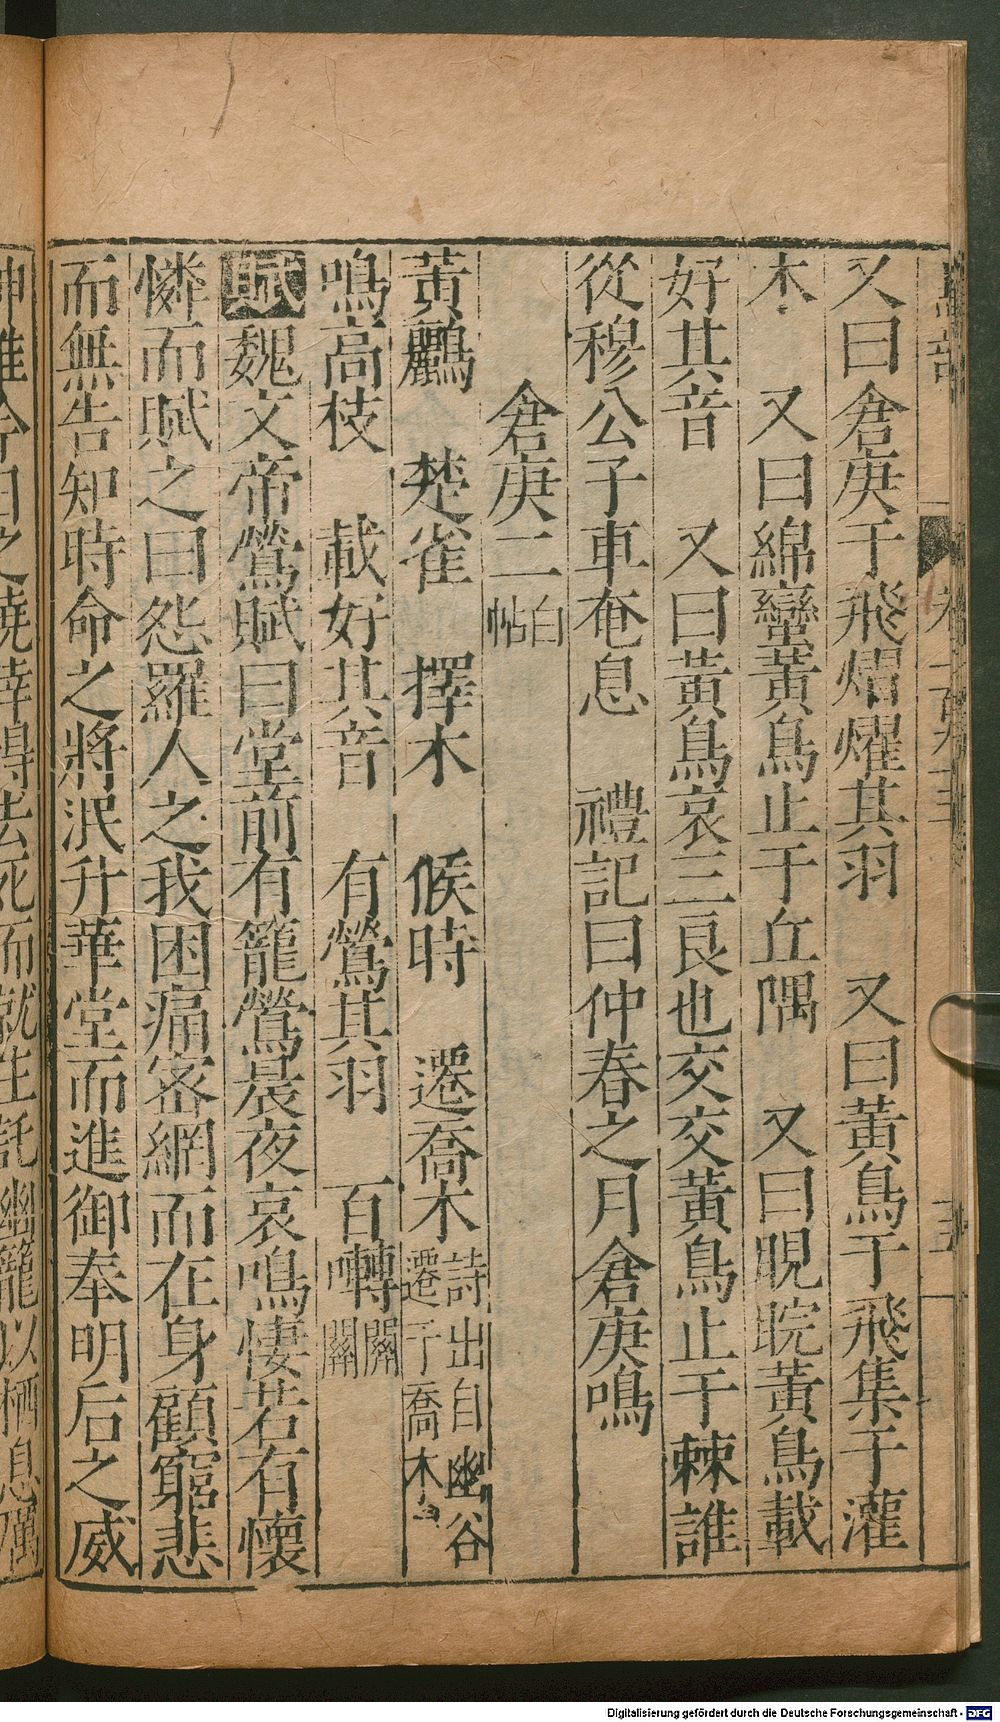 又曰倉庚于飛熠燿其羽　又曰黃鳥于飛集于灌
木　又曰綿蠻黃鳥止于丘隅　又曰睍睆黃鳥載
好其音　又曰黃鳥哀三良也交交黃鳥止于棘誰
從穆公子車奄息　禮記曰仲春之月倉庚鳴
倉庚二白帖
黃鸝　楚雀　擇木　候時　遷喬木詩出自幽谷遷于喬木
鳴高枝　載好其音　有鶯其羽　百囀關關
賦魏文帝鶯賦曰堂前有籠鶯晨夜哀鳴悽若有懷
憐而賦之曰怨羅人之我困痛密網而在身顧窮悲
而無告知時命之將泯升華堂而進御奉明后之威
今日之僥幸得去死而就生託幽籠以栖息厲
Digitalisierung gefördert durch die Deutsche Forschungsgemeinschaft - DFG